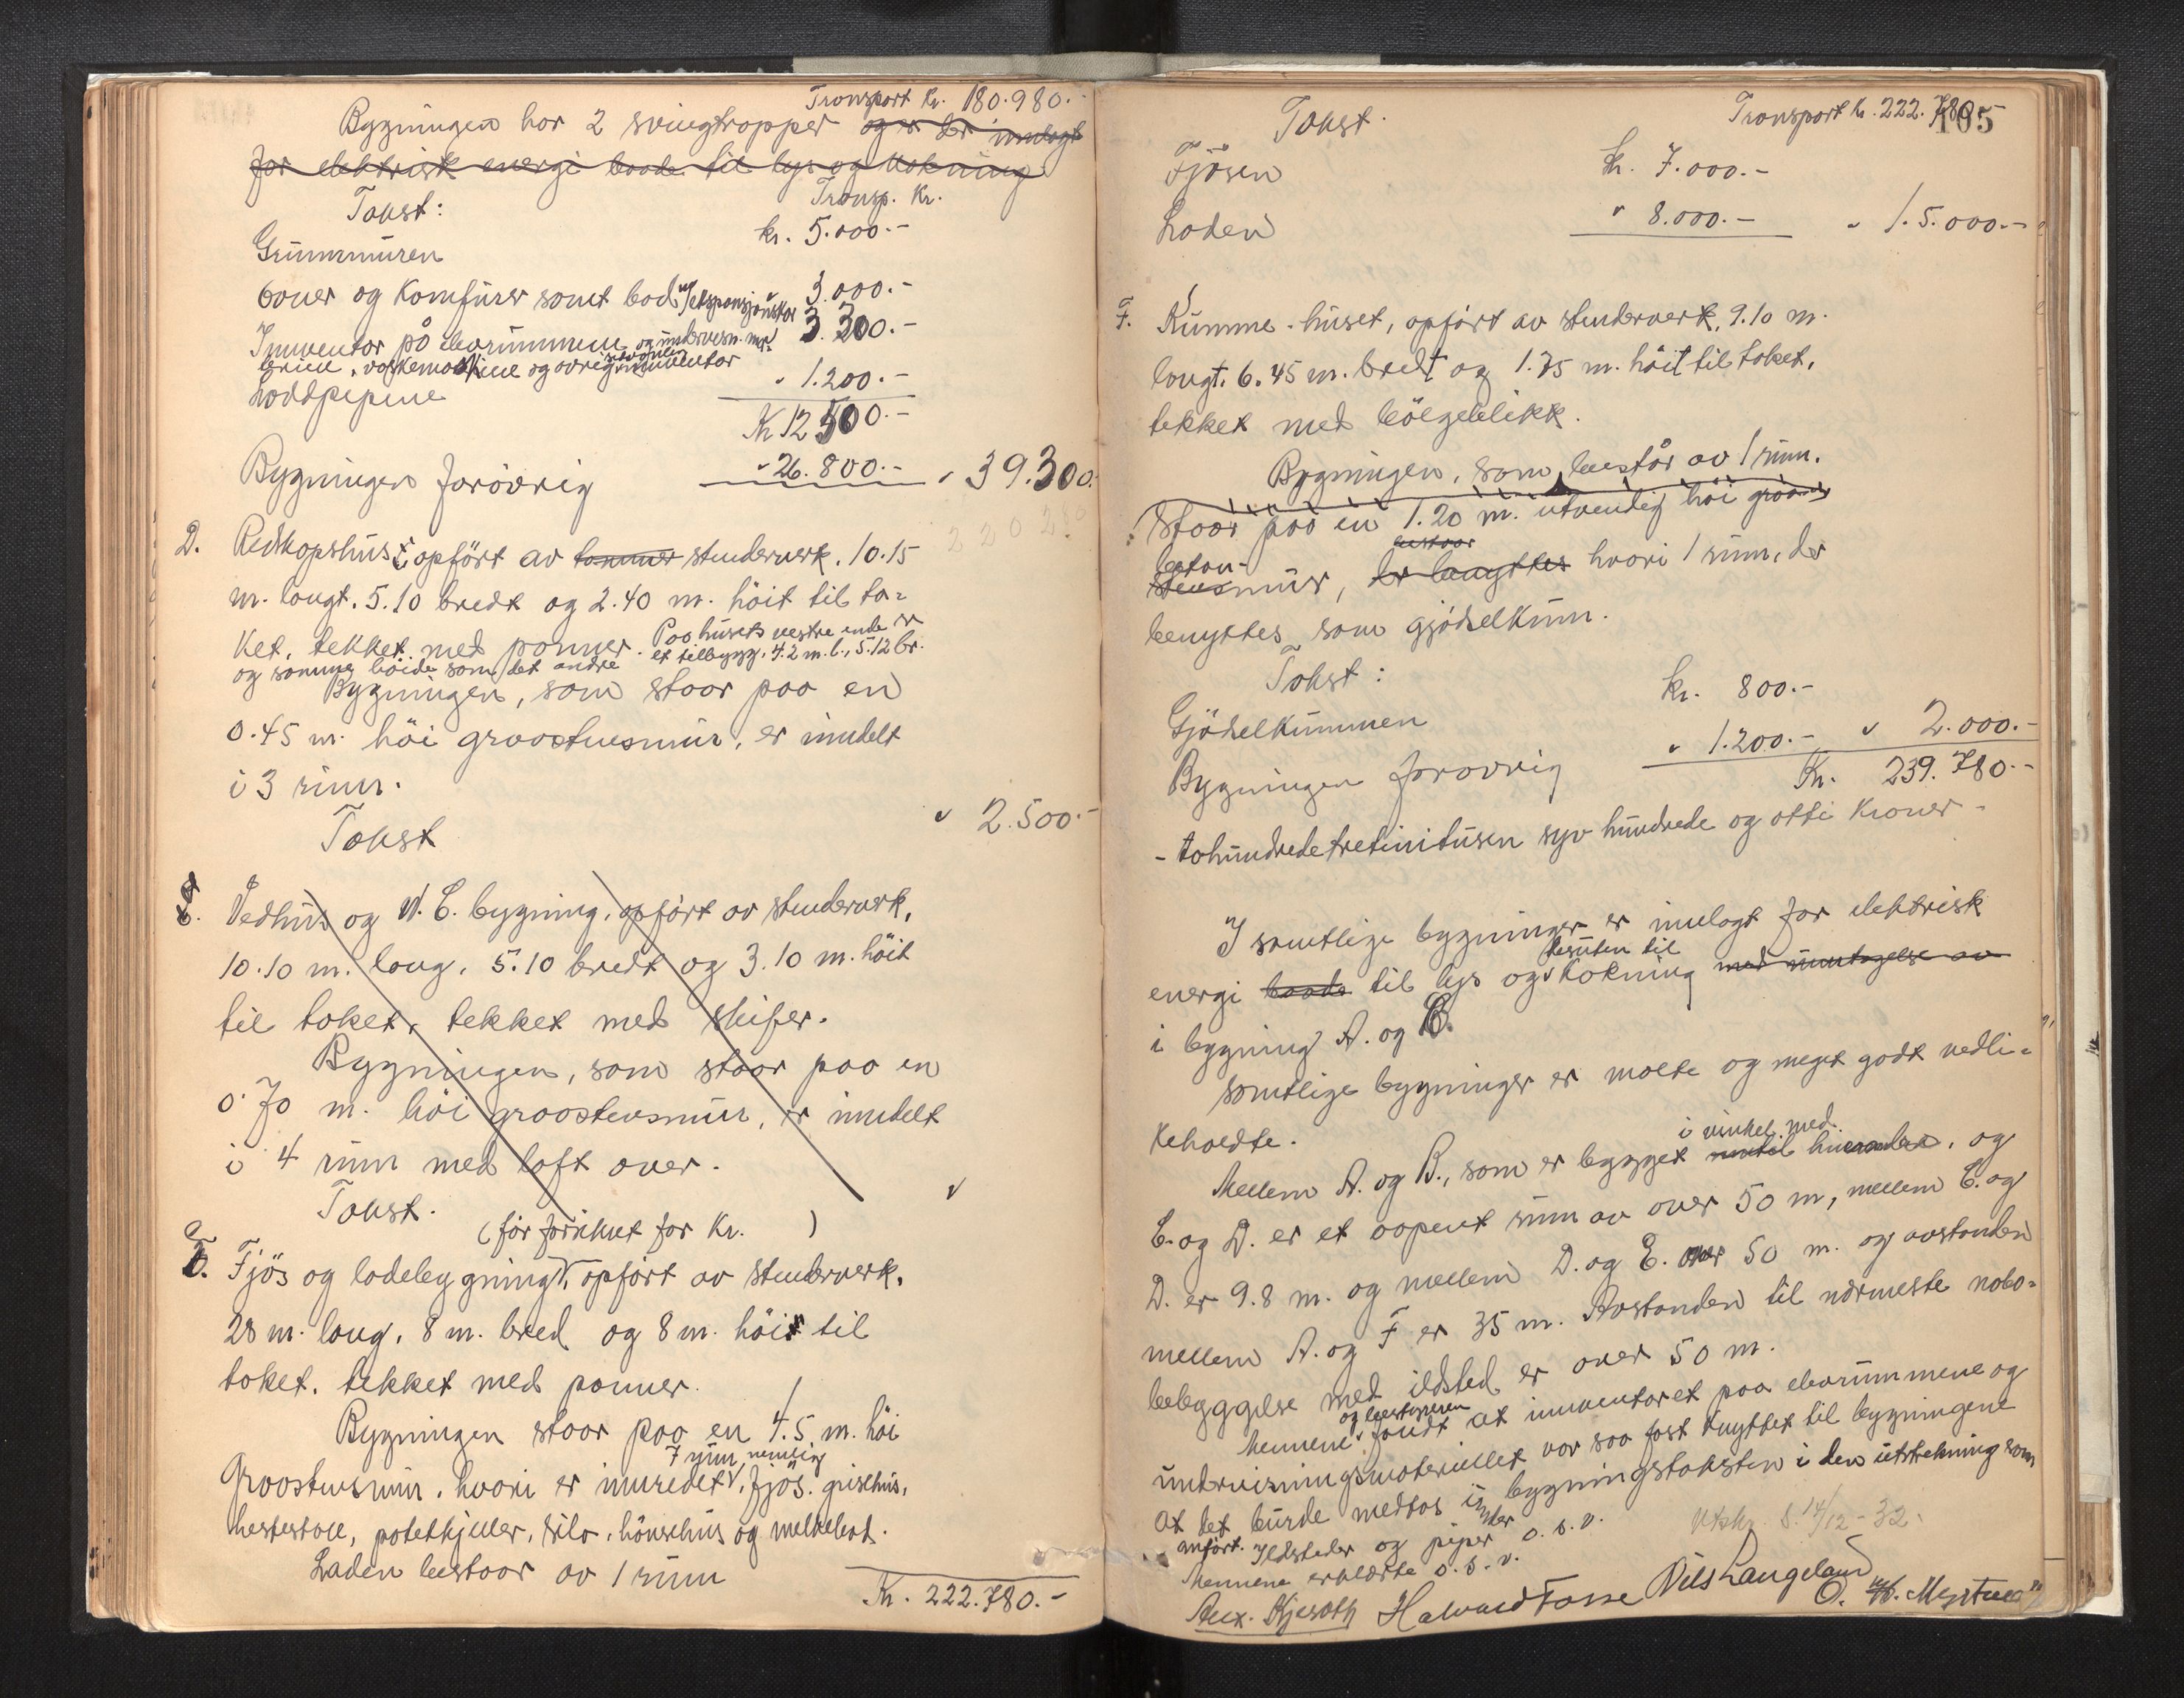 Transport kr. 180.980.-
Bygningen har 2 svingtrapper og er der innlagt
for elektrisk energi baade til lys og kokning
Takst: Transp. Kr.
Grunnmuren kr. 5.000.-
Ovner og komfürer samt bad m/ekspansjonskar " 3.000.-
Inventar på elevrummene og undervisn. mat. 3.300.-
vaskemaskine og øvrig inventar
Loddpipene " 1.200.-
Kr 12500.-
Bygningen forøvrig " 26.800.- " 39.300.-
220 280
D. Redkapshus opført av stenderverk, 10.15
m. langt, 5.10 bredt og 2.40 m. höit til ta-
ket, tekket med panner. Paa husets vestre ende er
et tilbygg, 4.2 m. l., 5.12 br.
og samme höide som det andre
Bygningen, som staar paa en
0.45 m. höi graastensmur, er inndelt
i 3 rum.
Takst " 2.500.-
Vedhus og W.C. bygning, opført av stenderverk,
10.10 m. lang, 5.10 bredt og 3.10 m. höit
til taket, tekket med skifer.
Bygningen, som staar paa en
0.70 m. höi graastensmur, er inndelt
i 4 rum med loft over.
Takst. "
(før forsikret for Kr. )
E. Fjös og ladebygning, opført av stenderverk,
28 m. lang, 8 m. bred og 8 m. höi til
taket, tekket med panner.
Bygningen staar paa en 4.5 m. höi
7 rum nemlig
Graastensmur, hvori er innredet, fjös, grisehus,
hestestall, potetkjeller, silo, hönsehus og melkebod.
Laden bestaar av 1 rum
Kr. 222.780.-
Transport kr. 222.780.-
105
Takst.
Fjösen kr. 7.000.-
Laden " 8.000.- " 15.000.-
F. Kumme-huset, opført av stenderverk, 9.10 m.
langt, 6.45 m. bredt og 1.75 m. höit til taket,
tekket med bölgeblikk.
Bygningen, som består av 1 rum.
Staar paa en 1.20 m. utvendig höi graa-
bestaar
beton-
stensmur, der benyttes hvori 1 rum, der
benyttes som gjödselkum.
Takst:
Gjödselkummen kr. 800.-
Bygningen forøvrig " 1.200.- " 2.000.-
Kr. 239.780.-
- tohundredetretinitusen syv hundrede og otti Kroner -
I samtlige bygninger er innlagt for elektrisk
desuten til
energi baade til lys og kokning med unntagelse av
i bygning A. og C.
Samtlige bygninger er malte og meget godt vedli-
keholdte.
i vinkel med
Mellem A. og B., som er bygget inntil hverandre, og
C. og D. er et aapent rum av over 50 m, mellem C. og
D. er 9.8 m. og mellem D. og E. over 50 m. og avstanden
mellem A. og F er 35 m. Avstanden til nærmeste nabo-
bebyggelse med ildsted er over 50 m.
og bestyreren
Mennene fandt at inventaret paa elevrummene og
undervisningsmateriellet var saa fast knyttet til bygningene
at det burde medtas i bygningstaksten i den utstrekning som
anført. Ildsteder og piper o.s.v.
Mennene erklærte o.s.v.
Utskr. S. 14/12-32.
Alex. Kjeroth Halvard Fosse Nils Langeland